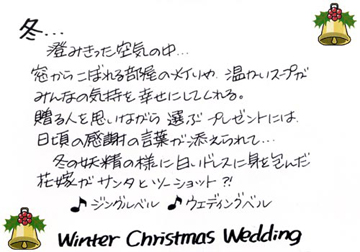 冬...
澄みきった空気の中...
窓からこぼれる部屋の灯りや 温かいスープが
みんなの気持を幸せにしてくれる。
贈る人を思いながら 選ぶプレゼントには
日頃の感謝の言葉が添えられて...
冬の妖精の様に白いドレスに身を包んだ
花嫁がサンタとツーショット?!
♪ジングルベル ♪ウェディングベル
Winter Christmas Wedding